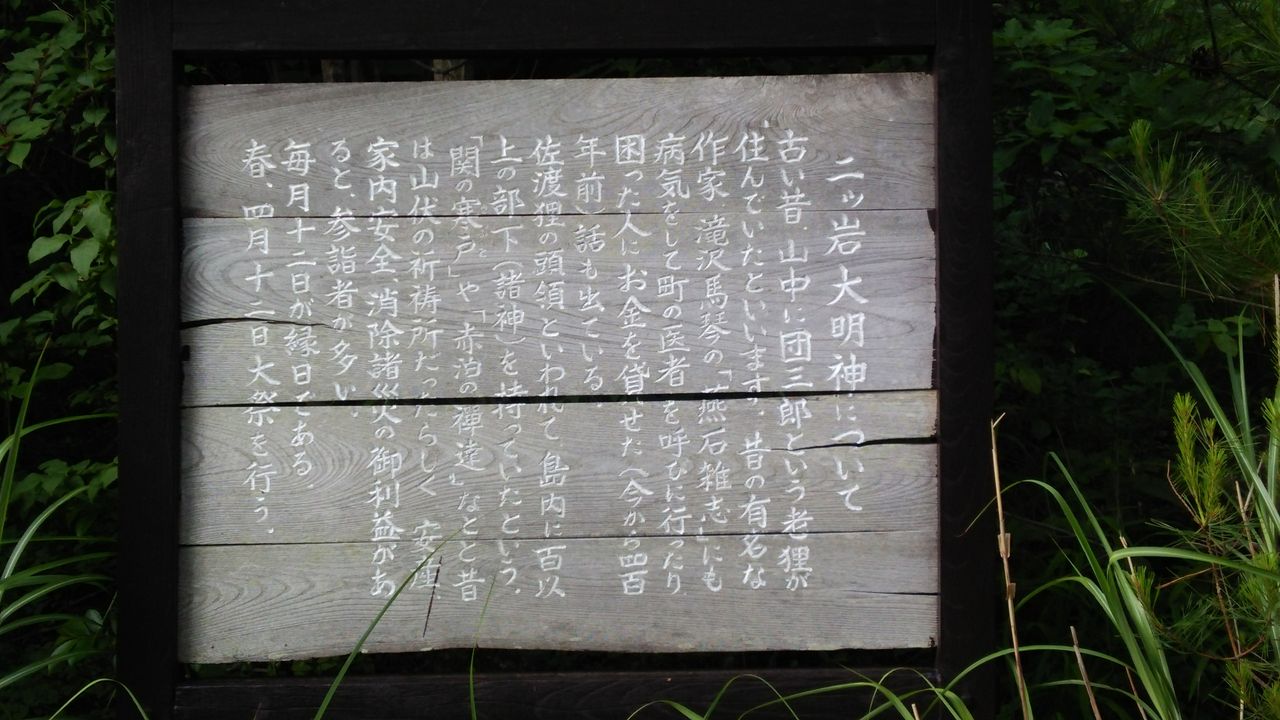 二ッ岩大明神について
古い昔、山中に団三郎という老狸が
住んでいたといいます。昔の有名な
作家 滝沢馬琴の「燕石雑志」にも
病気をして町の医者を呼びに行ったり
困った人にお金を貸せた(今から四百
年前)話も出ている。
佐渡狸の頭領といわれて、島内に百以
上の部下(諸神)を持っていたという。
「関の寒戸」や「赤泊の禅達」などと昔
は山伏の祈祷所だったらしく、安産、
家内安全、消除諸災の御利益があ
ると、参詣者が多い。
毎月十二日が縁日である。
春、四月十二日大祭を行う。